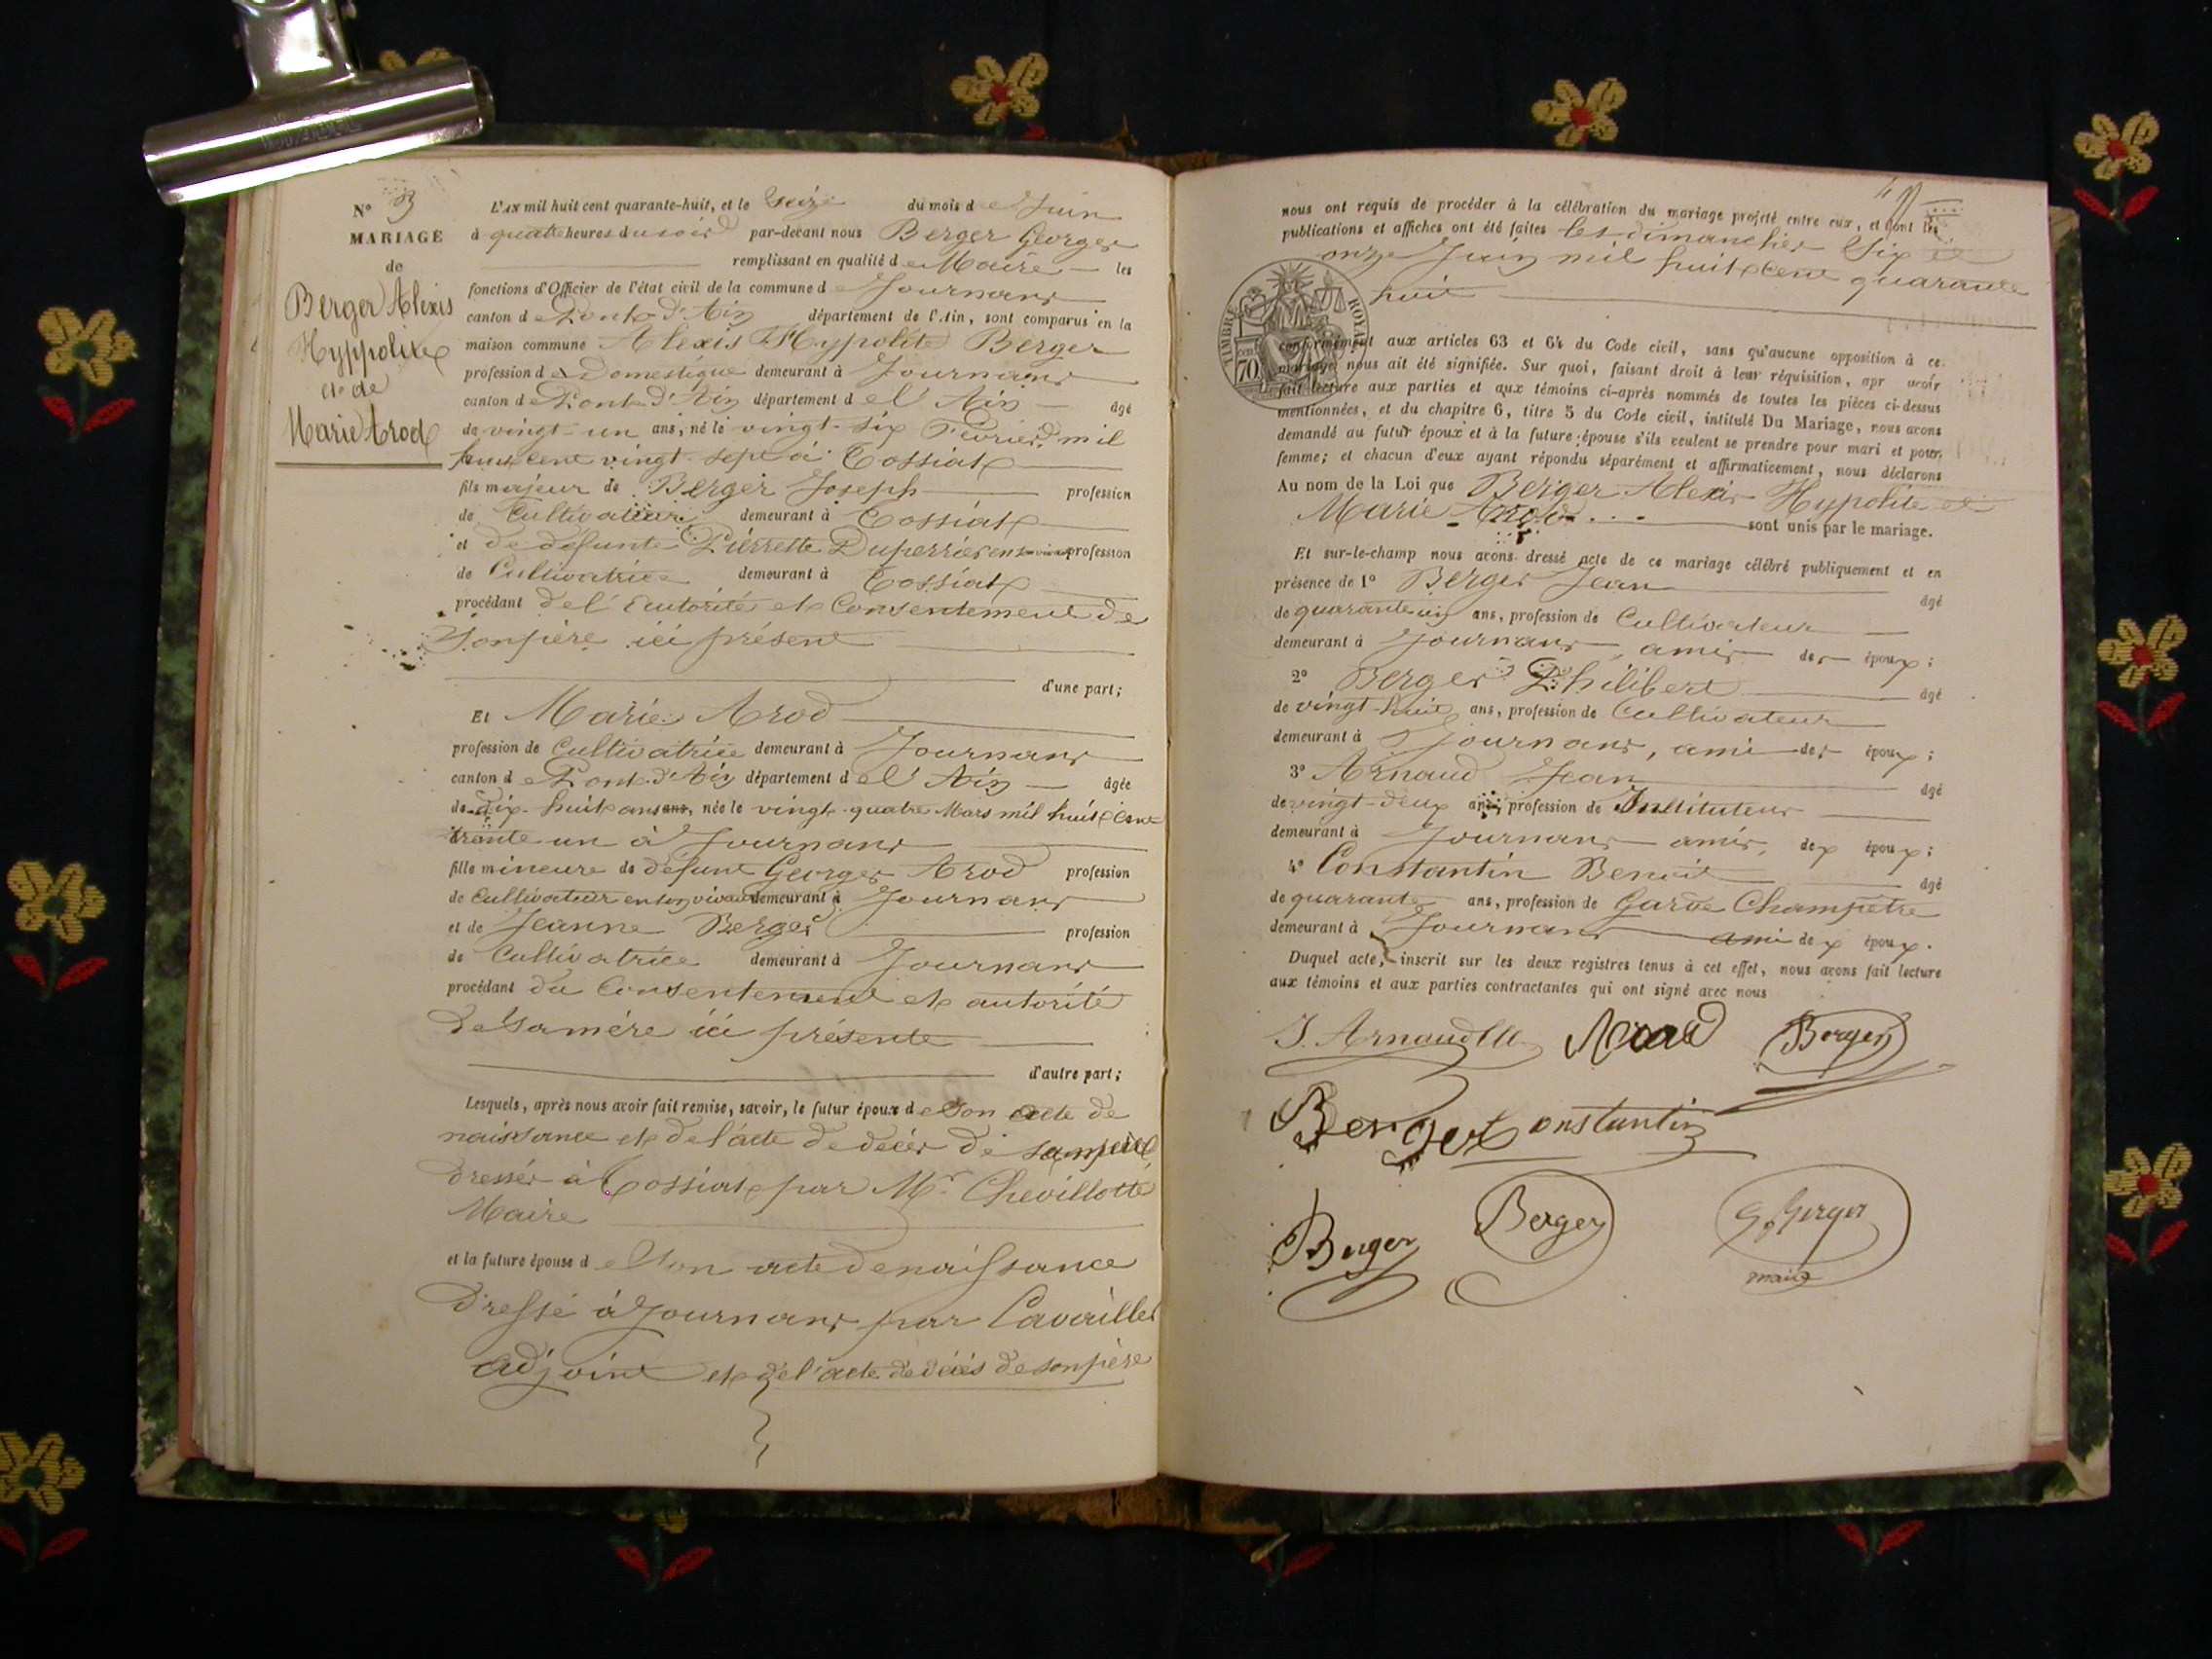 N° 3
MARIAGE
de
Berger Alexis
Hyppolite
et de
Marie Arod
L'AN mil huit cent quarante-huit, et le seize du mois de Juin
à quatre heures du soir par-devant nous Berger Georges
remplissant en qualité de Maire les
fonctions d'Officier de l'état civil de la commune de Journans
canton de Pont-d'Ain département de l'Ain, sont comparus en la
maison commune Alexis Hypolite Berger
profession de Domestique demeurant à Journans
canton de Pont-d'Ain département de l'Ain âgé
de vingt-un ans, né le vingt-six Février mil
huit cent vingt-sept à Tossiat
fils majeur de Berger Joseph profession
de Cultivateur demeurant à Tossiat
et de defunte Pierrette Duperrier en son vivant profession
de Cultivatrice demeurant à Tossiat
procédant de l'autorité et Consentement de
Son père ici présent
d'une part;
Et Marie Arod
profession de Cultivatrice demeurant à Journans
canton de Pont-d'Ain département de l'Ain âgée
de dix-huit ans ans, née le vingt-quatre Mars mil huit cent
trente un à Journans
fille mineure de défunt Georges Arod profession
de Cultivateur en son vivant demeurant à Journans
et de Jeanne Berger profession
de Cultivatrice demeurant à Journans
procédant du Consentement et autorité
de Sa mère ici présente
d'autre part;
Lesquels, après nous avoir fait remise, savoir, le futur époux de Son acte de
naissance et de l'acte de décès de sa
dressés à Tossiat par Mr Chevillotte
Maire
et la future épouse de Son acte de naissance
dressé à Journans par Cavaillet
adjoint et de l'acte de décès de son père
nous ont requis de procéder à la célébration du mariage projeté entre eux, et dont les
publications et affiches ont été faites les dimanches Six et
onze Juin mil huit cent quarante
huit
TIMBRE ROYAL
cent 70
conformément aux articles 63 et 64 du Code civil, sans qu'aucune opposition à ce
mariage nous ait été signifiée. Sur quoi, faisant droit à leur réquisition, apr avoir
fait lecture aux parties et aux témoins ci-après nommés de toutes les pièces ci-dessus
mentionnées, et du chapitre 6, titre 5 du Code civil, intitulé Du Mariage, nous avons
demandé au futur époux et à la future épouse s'ils veulent se prendre pour mari et pour
femme; et chacun d'eux ayant répondu séparément et affirmativement, nous déclarons
Au nom de la Loi que Berger Alexis Hypolite et
Marie Arod sont unis par le mariage.
Et sur-le-champ nous avons dressé acte de ce mariage célébré publiquement et en
présence de 1° Berger Jean âgé
de quarante un ans, profession de Cultivateur
demeurant à Journans, amis des époux;
2° Berger Philibert âgé
de vingt-huit ans, profession de Cultivateur
demeurant à Journans, ami des époux;
3° Arnaud Jean âgé
de vingt-deux ans, profession de Instituteur
demeurant à Journans amis, des époux;
4° Constantin Benoit âgé
de quarante ans, profession de Garde Champêtre
demeurant à Journans ami des époux.
Duquel acte, inscrit sur les deux registres tenus à cet effet, nous avons fait lecture
aux témoins et aux parties contractantes qui ont signé avec nous
J. Arnaud Arod Berger
Berger Constantin
Berger Berger G. Berger
maire